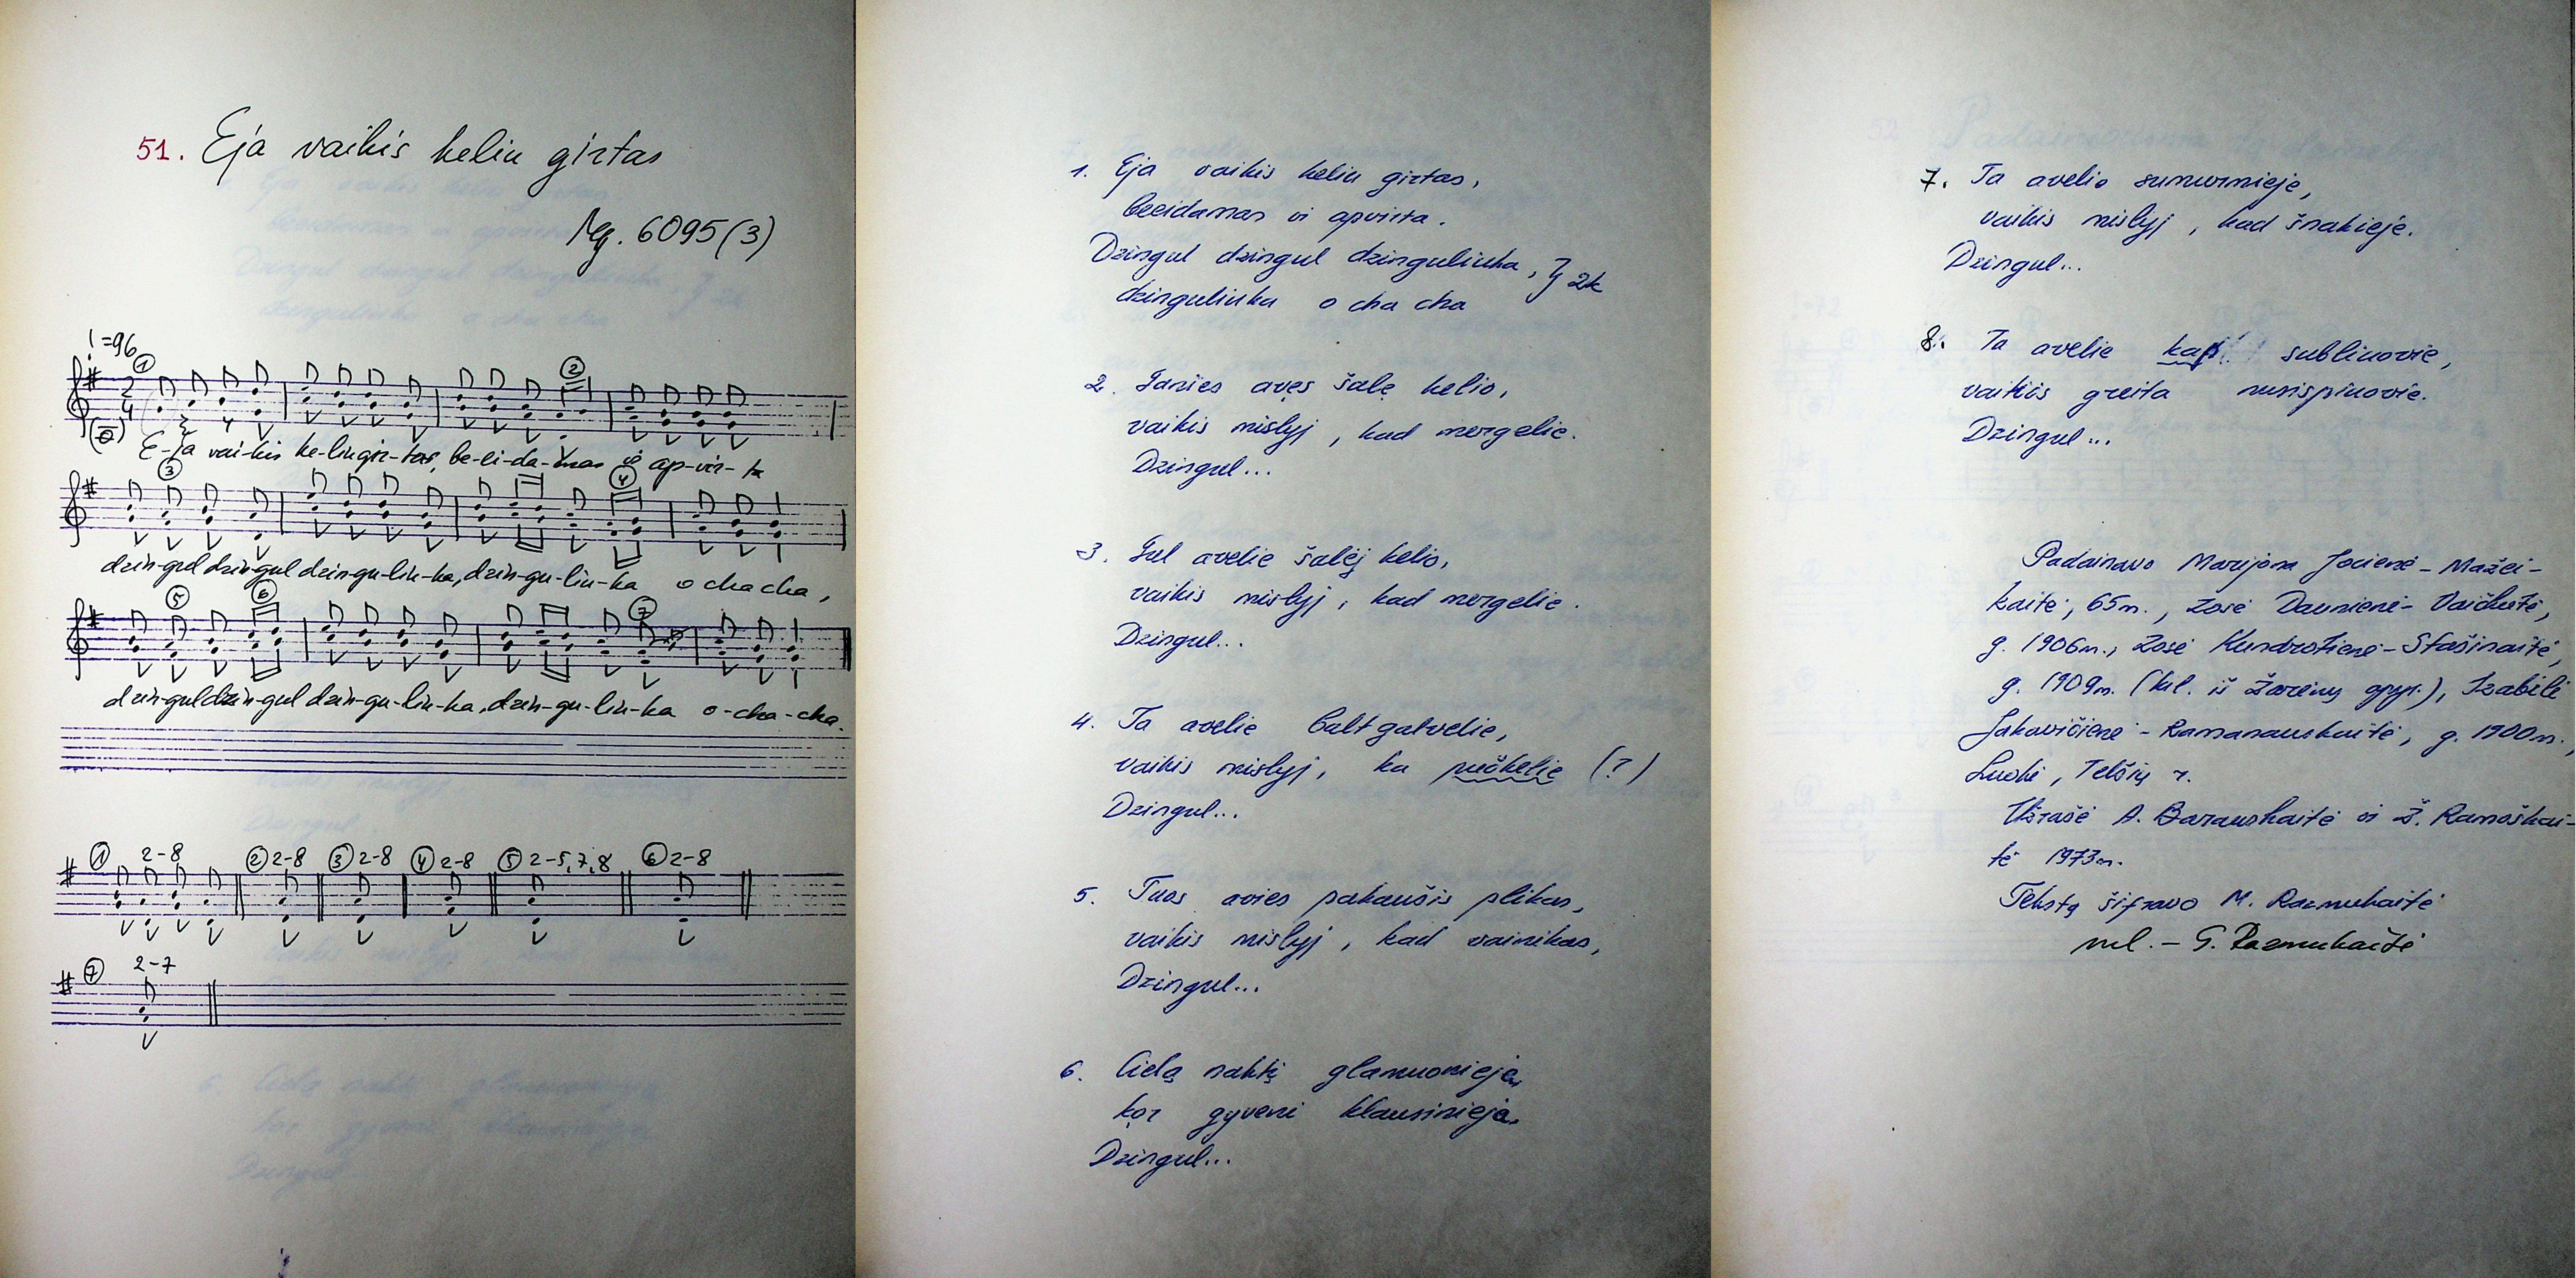 51. Eja vaikis keliu girtas
Mg. 6095(3)
=96
① ②
2
4
E-ja vai-kis ke-liu gir-tas, be-ei-da-mas ir ap-vir-ta
③ ④
dzin-gul dzin-gul dzin-gu-liu-ka, dzin-gu-liu-ka o cha cha,
⑤ ⑥ ⑦
dzin-gul dzin-gul dzin-gu-liu-ka, dzin-gu-liu-ka o-cha-cha.
① 2-8 ② 2-8 ③ 2-8 ④ 2-8 ⑤ 2-5,7,8 ⑥ 2-8
⑦ 2-7
1. Eja vaikis keliu girtas,
beeidamas ir apvirta.
Dzingul dzingul dzinguliuka, } 2k
dzinguliuka o cha cha
2. Ganies avęs šalę kelio,
vaikis mislyj, kad mergelie.
Dzingul...
3. Gul avelie šalėj kelio,
vaikis mislyj, kad mergelie.
Dzingul...
4. Ta avelie balt gatvelie,
vaikis mislyj, ka pučkelie (?)
Dzingul...
5. Tuos avies pakaušis plikas,
vaikis mislyj, kad vainikas,
Dzingul...
6. Cielą naktį glamuornieja,
kor gyveni klausinieja.
Dzingul...
7. Ta avelie sumurnieje,
vaikis mislyj, kad šnakieje.
Dzingul...
8. Ta avelie kap subliuovie,
vaikiis greita nusispiuovie.
Dzingul...
Padainavo Marijona Jocienė-Mažei-
kaitė, 65m., Zosė Daunienė-Vaičkutė,
g. 1906m., Zosė Kundrotienė-Stašinaitė,
g. 1909m. (kil. iš Žarėnų apyl.), Izabėlė
Jakavičienė-Ramanauskaitė, g. 1900m.,
Luokė, Telšių r.
Užrašė A. Baranskaitė ir Ž. Ramoškai-
tė 1973m.
Tekstą šifravo M. Razmukaitė
mel. – G. Razmukaitė